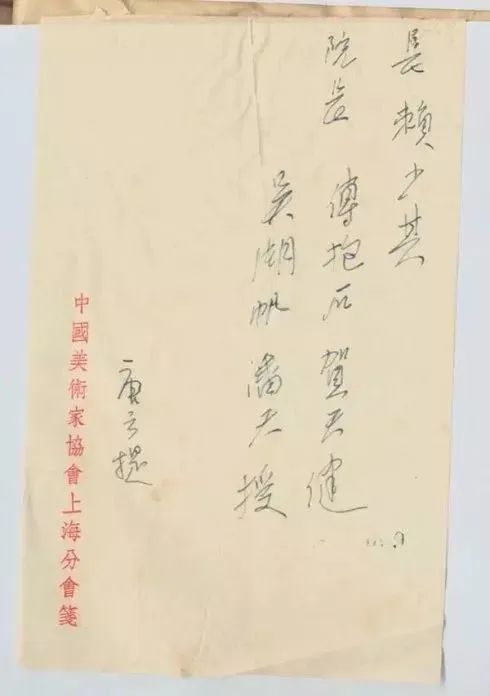 長賴少其
院长 傅抱石 賀天健
吳湖帆 潘天授
唐云提
中國美術家協會上海分會箋